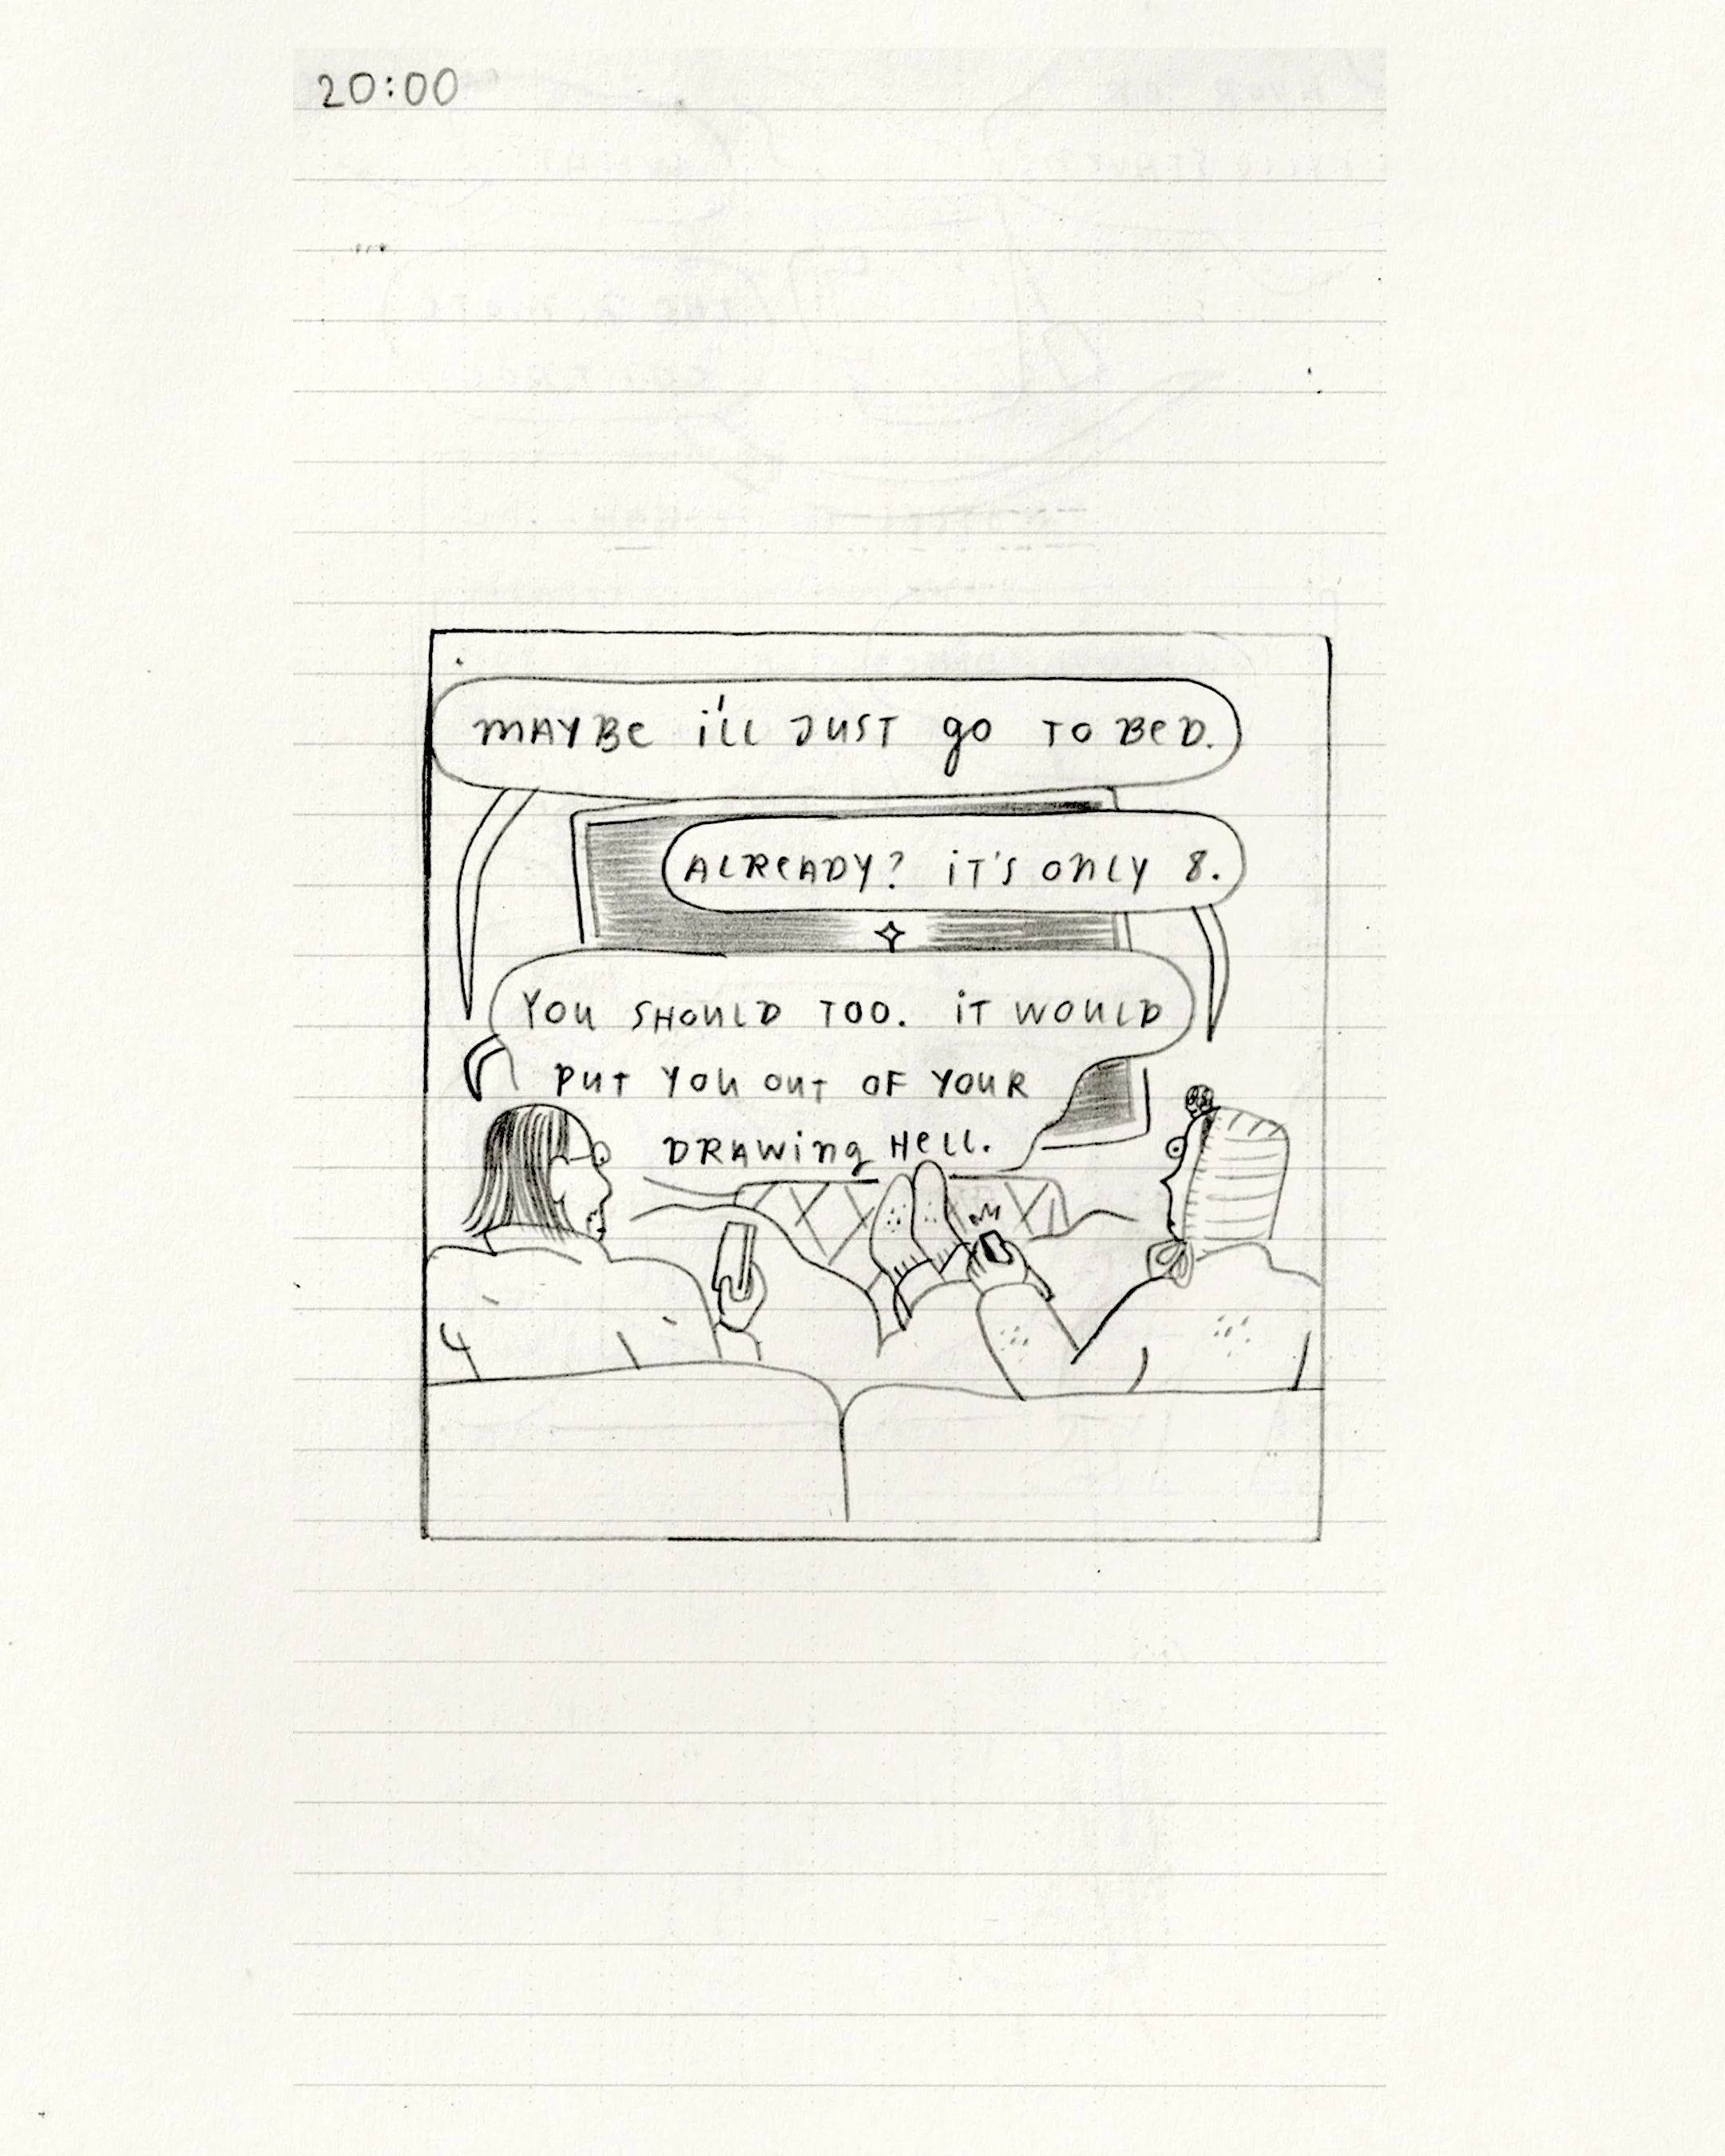 20:00
MAYBE i'LL JUST go TO BED.
ALREADY? iT'S ONLY 8.
YOU SHOULD TOO. iT WOULD
PUT YOU OUT OF YOUR
DRAWing HELL.